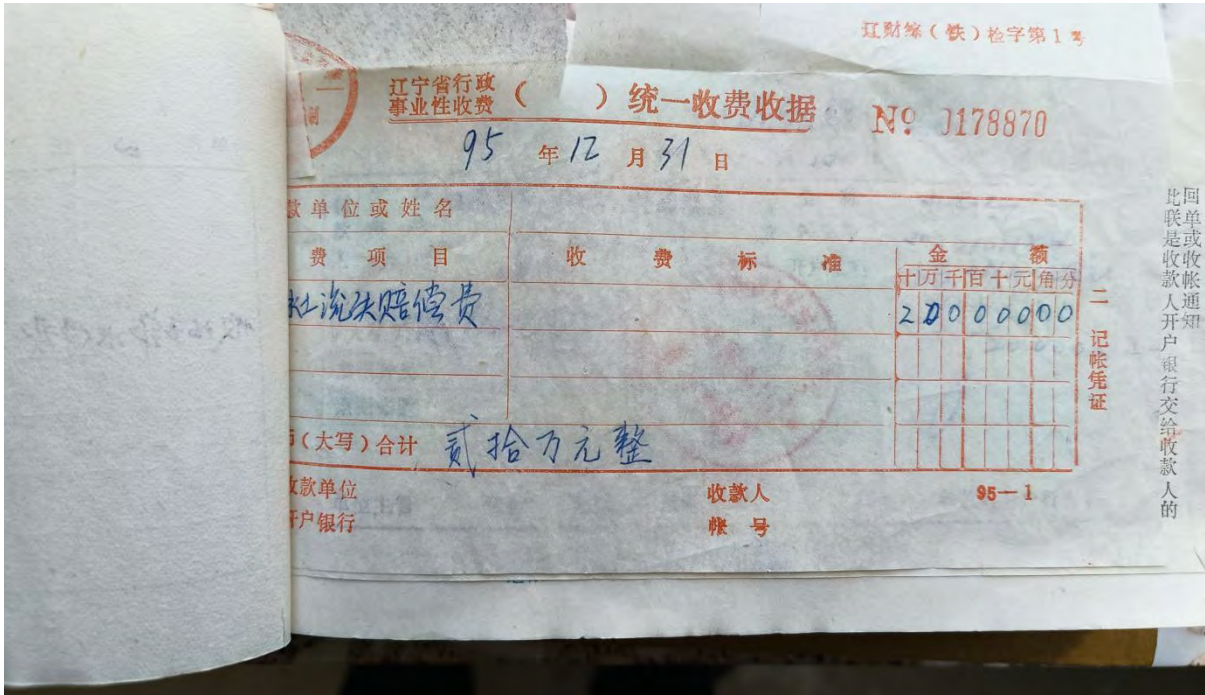 辽财综(铁)检字第1号
辽宁省行政
事业性收费
( )统一收费收据
№ 0178870
95年12月31日
款单位或姓名
费项目 收费标准 金额
十万千百十元角分
水土流失赔偿费 20000000
(大写)合计 贰拾万元整
收款单位 收款人 95—1
开户银行 帐号
二 记帐凭证
回单或收帐通知
此联是收款人开户银行交给收款人的